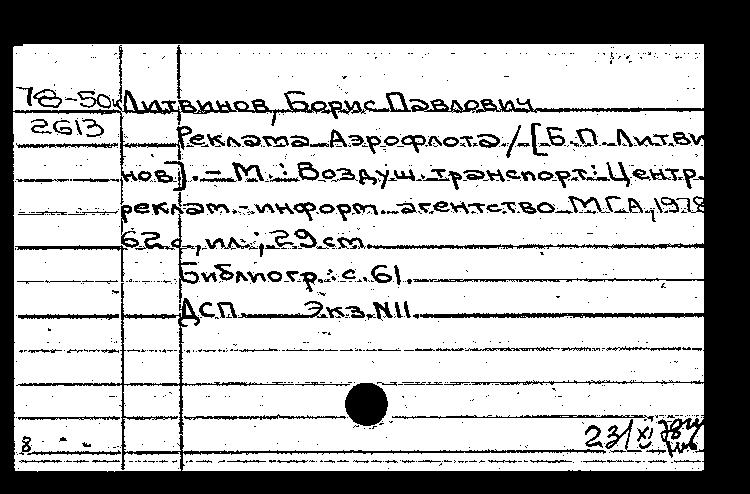 78-50к Литвинов, Борис Павлович
2613
Реклама Аэрофлота / [Б.П. Литви
нов]. – М. : Воздуш. транспорт: Центр.
реклам.-информ. агентство МГА, 1978
62 с., ил.; 29 см.
Библиогр.: с. 61.
ДСП Экз.N11.
8
23/XI